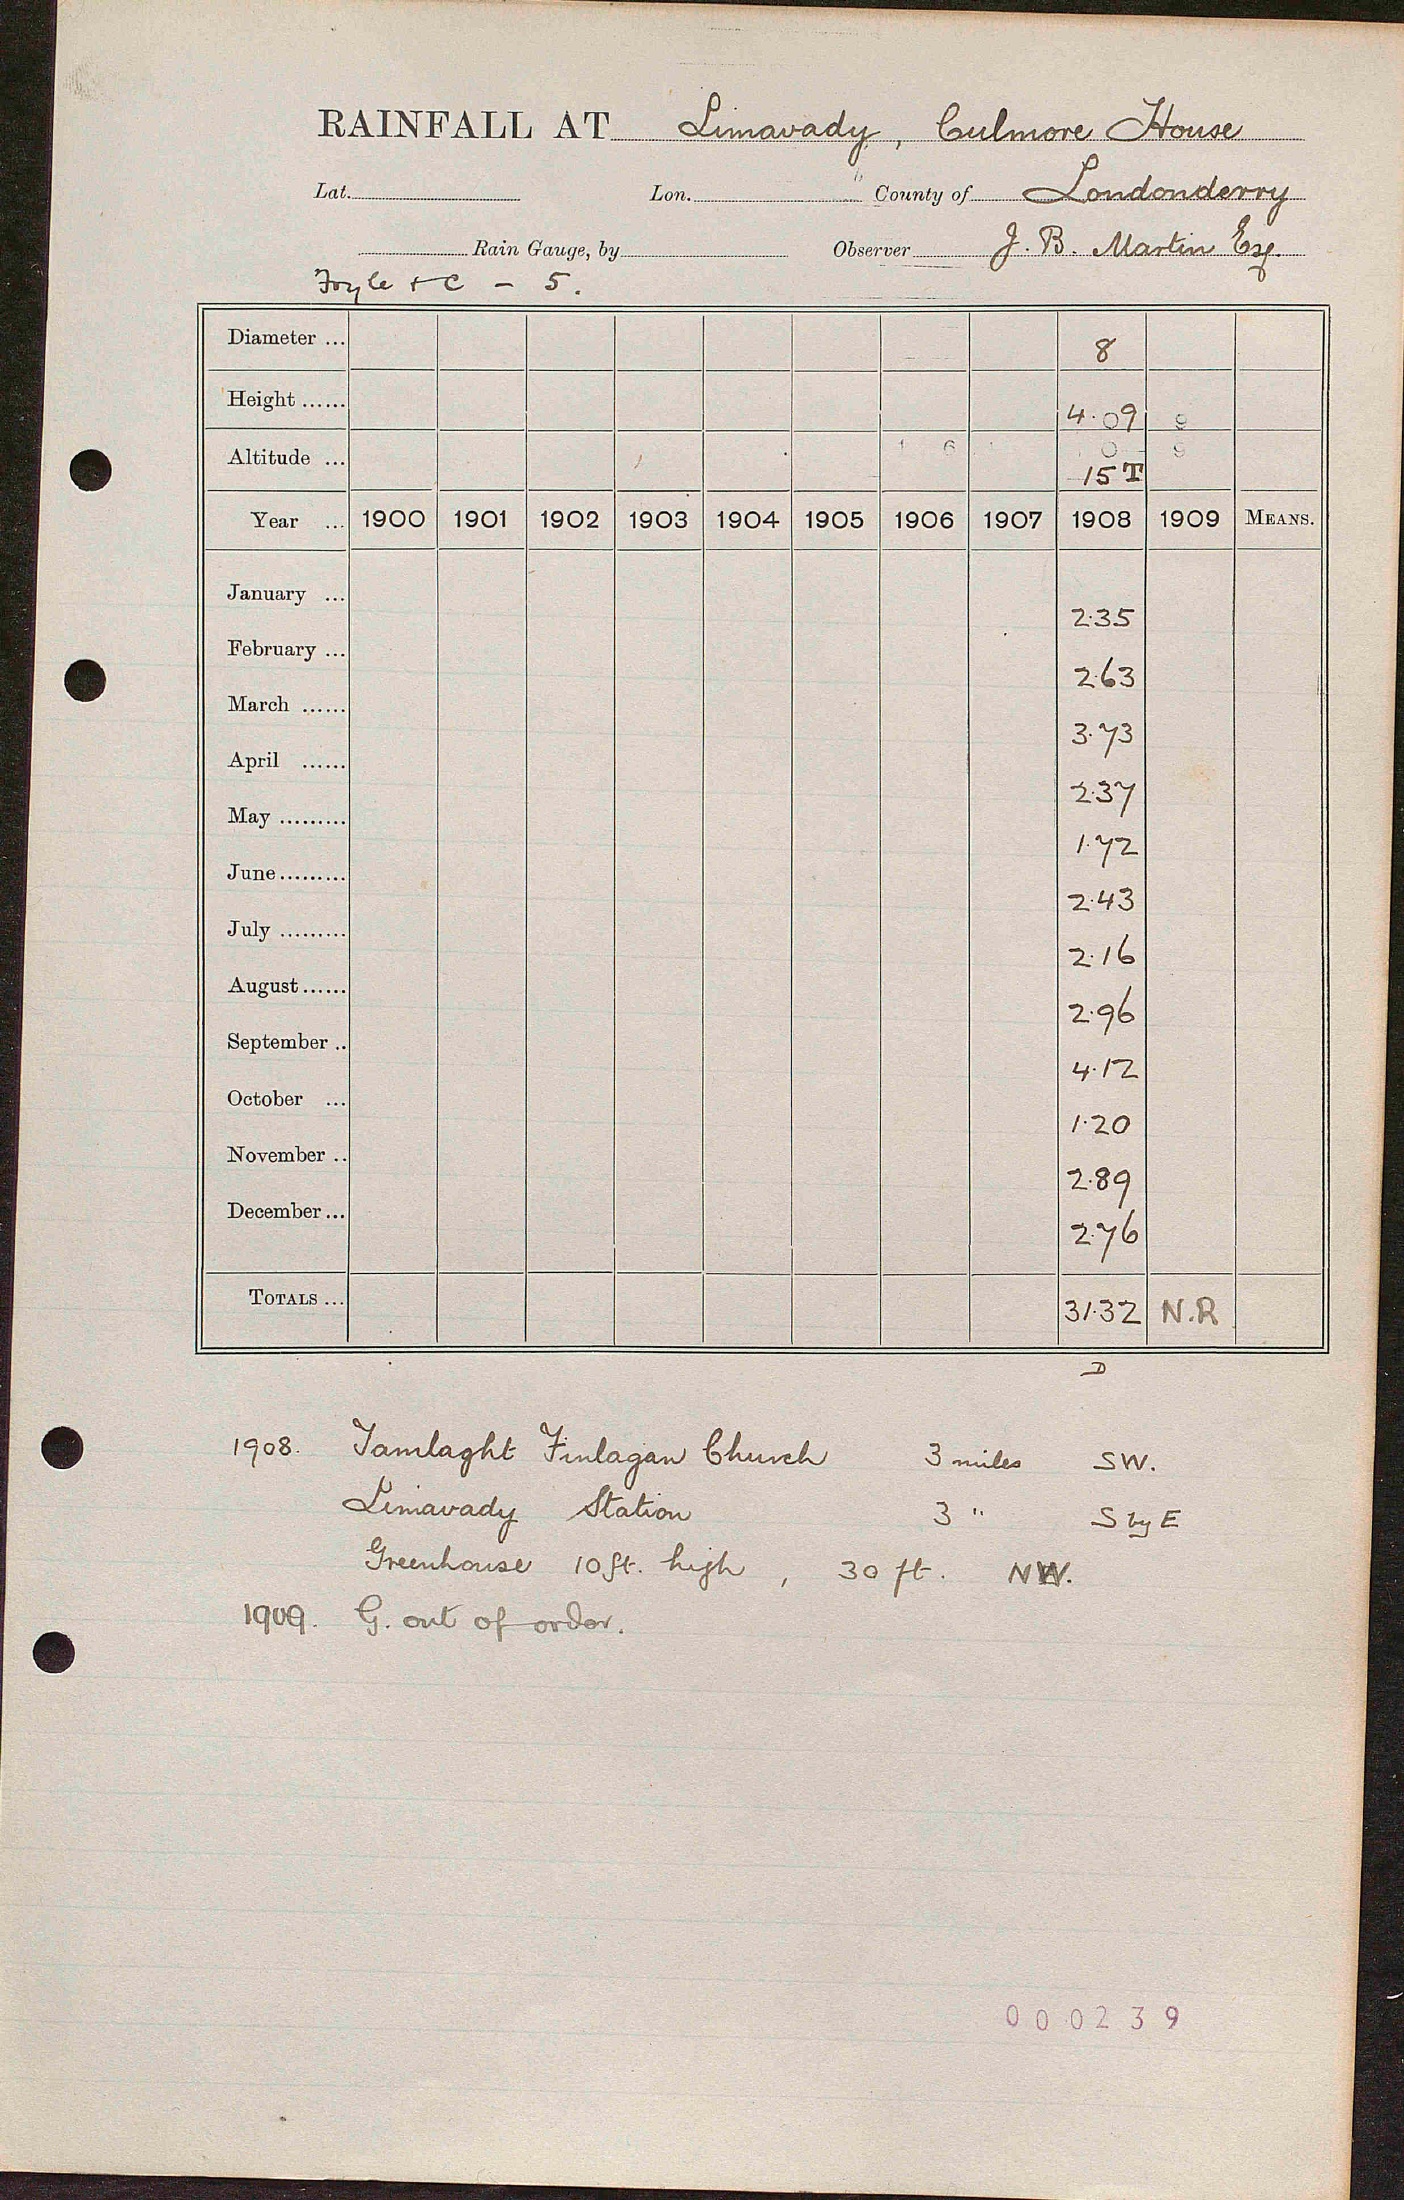 RAINFALL AT Limavady, Culmore House
Lat. Lon. County of Londonderry
Rain Gauge, by Observer J. B. Martin Esq.
Foyle & C – 5.
Diameter ... 8
Height ...... 4.09 9
Altitude ... 15T
Year ... 1900 1901 1902 1903 1904 1905 1906 1907 1908 1909 MEANS.
January ... 2.35
February ... 2.63
March ...... 3.73
April ...... 2.37
May ......... 1.72
June......... 2.43
July ......... 2.16
August...... 2.96
September .. 4.12
October ... 1.20
November .. 2.89
December... 2.76
TOTALS ... 31.32 N.R
D
1908. Tamlaght Finlagan Church 3 miles SW.
Limavady Station 3 " S by E
Greenhouse 10 ft. high, 30 ft. NW.
1909. G. out of order.
000239